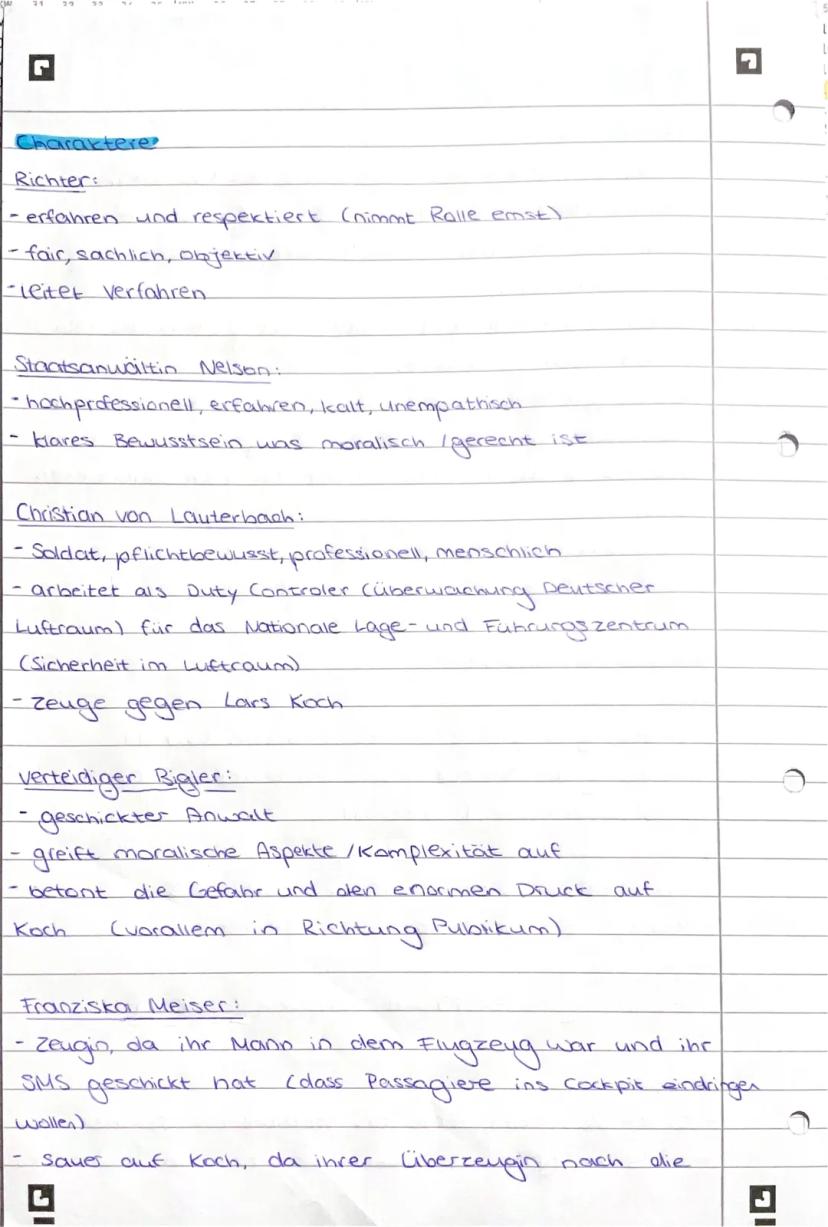 Charaktere
Richter:
- erfahren und respektiert (nimmt Rolle ernst)
- fair, sachlich, objektiv
- leitet Verfahren
Staatsanwältin Nelson:
- hochprofessionell, erfahren, kalt, unempathisch
- klares Bewusstsein was moralisch / gerecht ist
Christian von Lauterbach:
- Soldat, pflichtbewusst, professionell, menschlich
- arbeitet als Duty Controler (Überwachung Deutscher
Luftraum) für das Nationale Lage- und Führungszentrum
(Sicherheit im Luftraum)
- Zeuge gegen Lars Koch
Verteidiger Bigler:
- geschickter Anwalt
- greift moralische Aspekte / Komplexität auf
- betont die Gefahr und den enormen Druck auf
Koch (vorallem in Richtung Publikum)
Franziska Meiser:
- Zeugin, da ihr Mann in dem Flugzeug war und ihr
SMS geschickt hat (dass Passagiere ins Cockpit eindringen
wollen)
- sauer auf Koch, da ihrer Überzeugin nach die